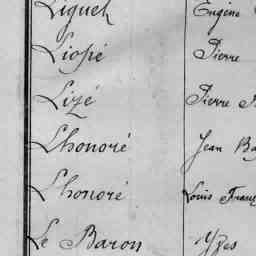 Liguet Eugène
Liopé Pierre
Lizé Pierre
Lhonoré Jean
Lhonoré Louis
Le Baron Yves